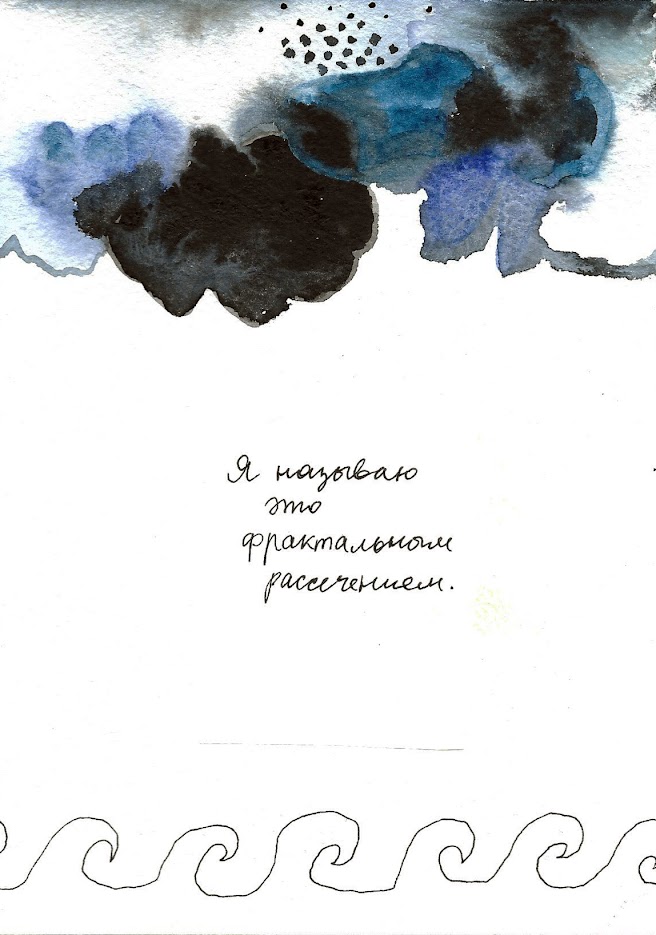 Я называю
это
фрактальным
рассечением.